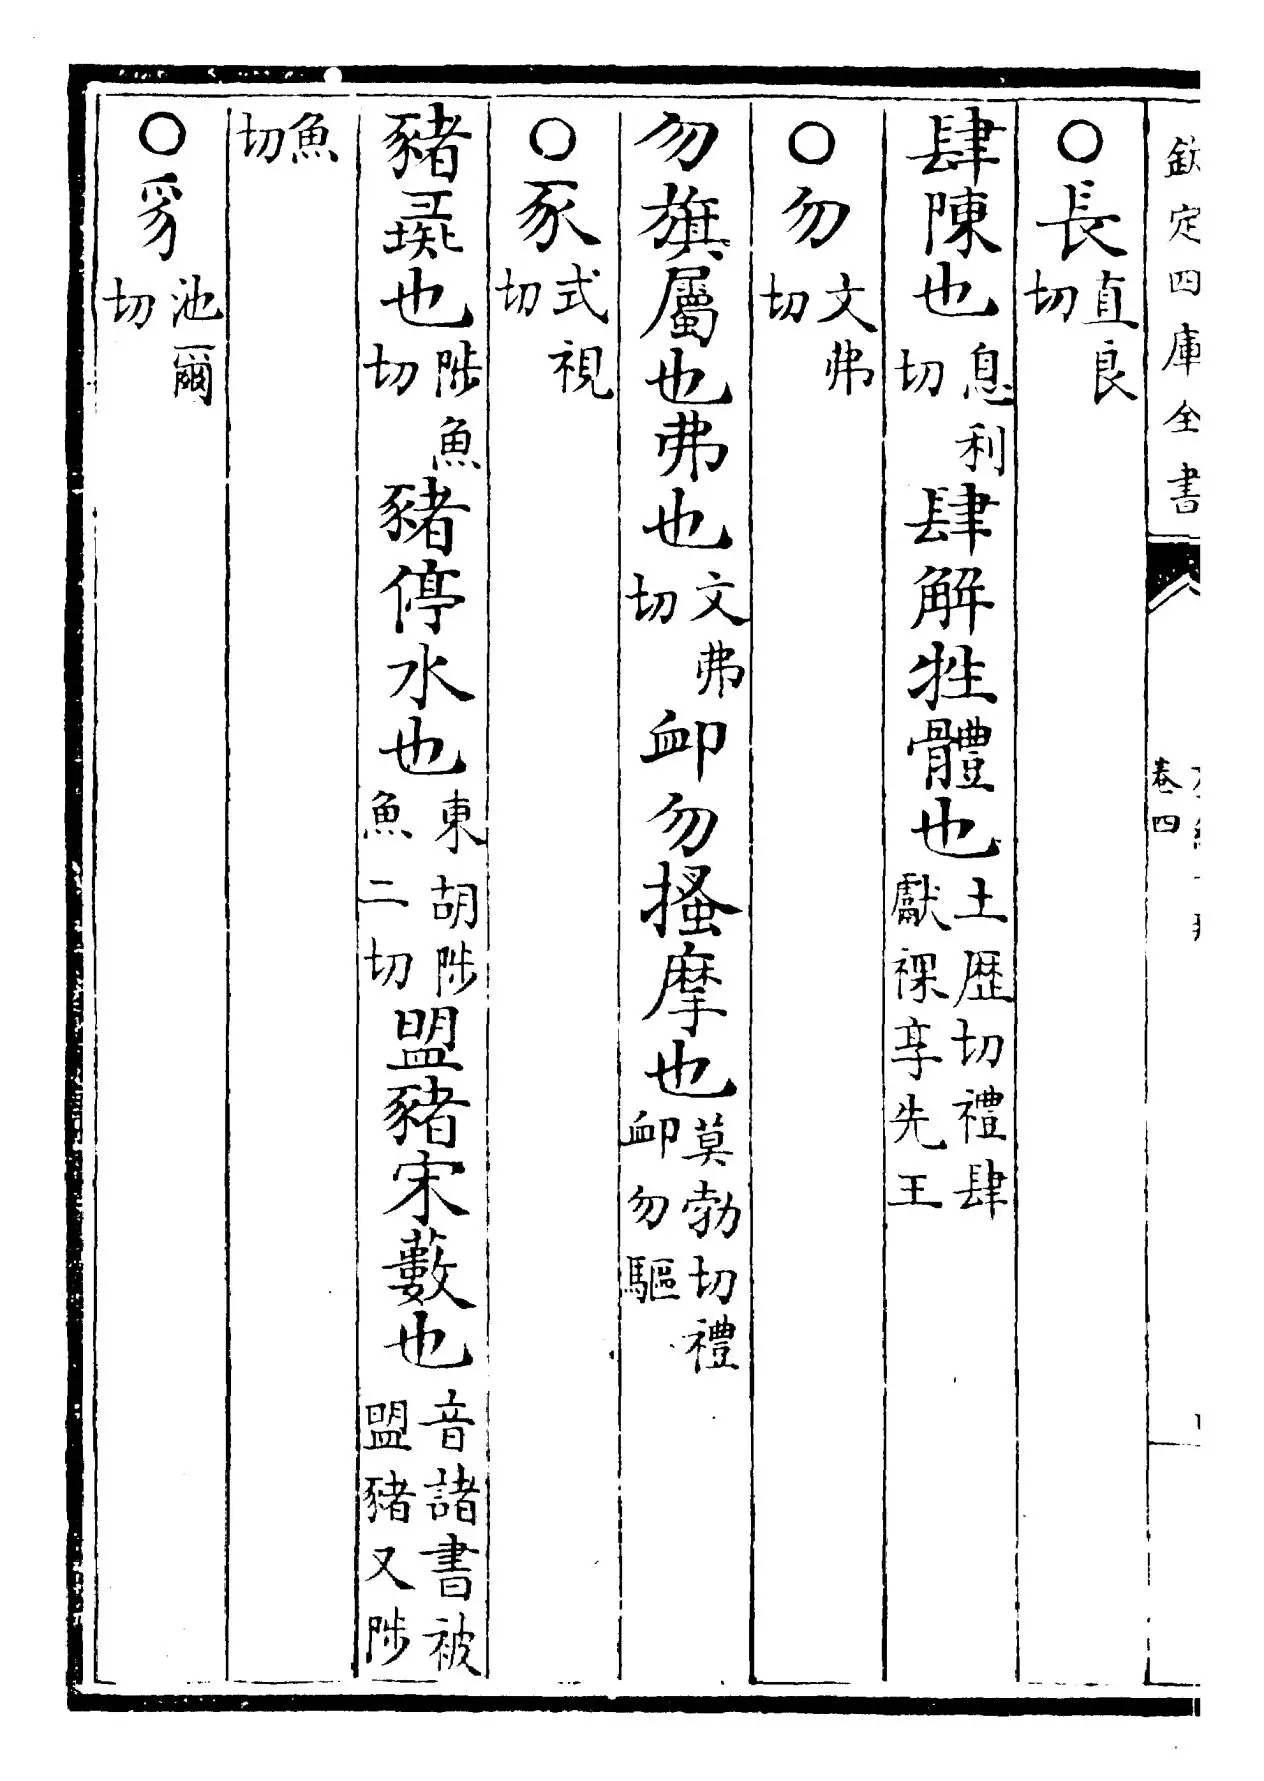 欽定四庫全書
卷四
○長直良切
肆陳也息利切肆解牲體也土歴切禮肆獻祼享先王
○勿文弗切
勿旗屬也弗也文弗切卹勿搔摩也莫勃切禮卹勿驅
○豕式視切
豬彘也陟魚切豬停水也東胡陟魚二切盟豬宋藪也音諸書被盟豬又陟
魚切
○豸池爾切